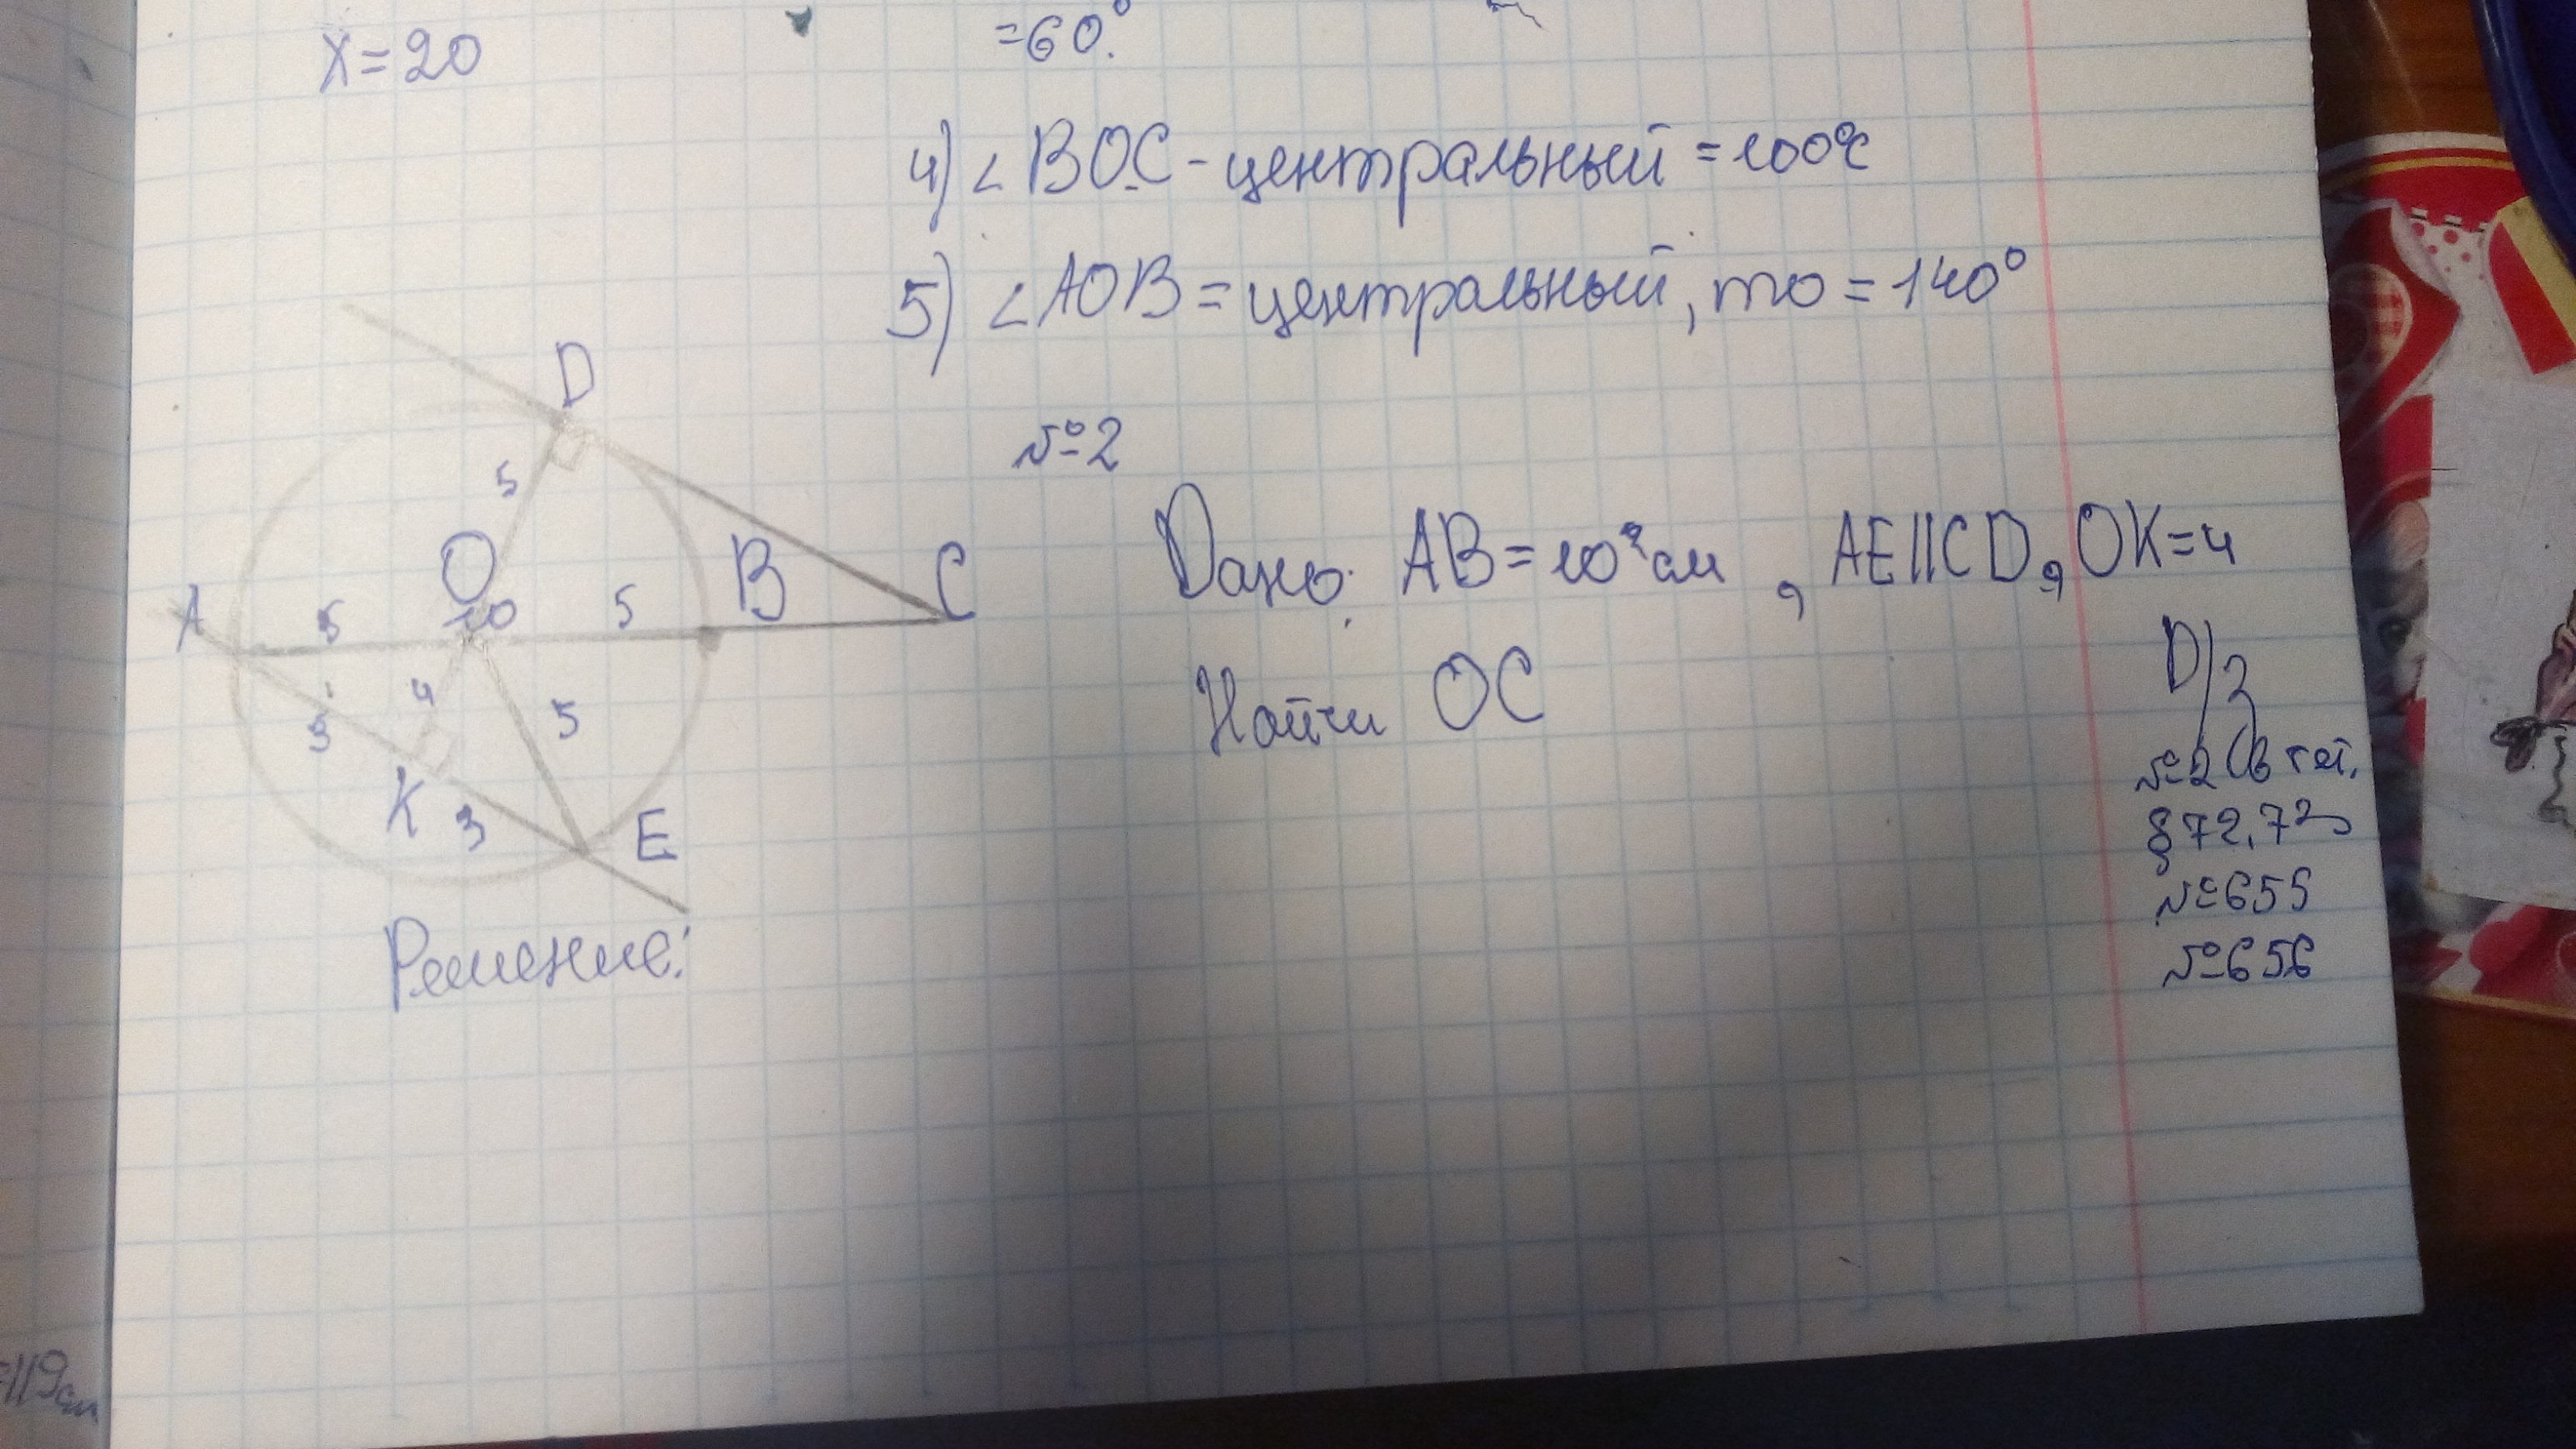 X=20
=60.°
4) ∠BOC - центральный =100°
5) ∠AOB = центральный, то =140°
№2
Дано: AB=10 см, AE||CD, OK=4
Найти OC
D
5
O
B
C
A
5
10
5
3
4
5
K
3
E
Решение:
D/з
№2 (в тет.
§72,73
№655
№656
=119см